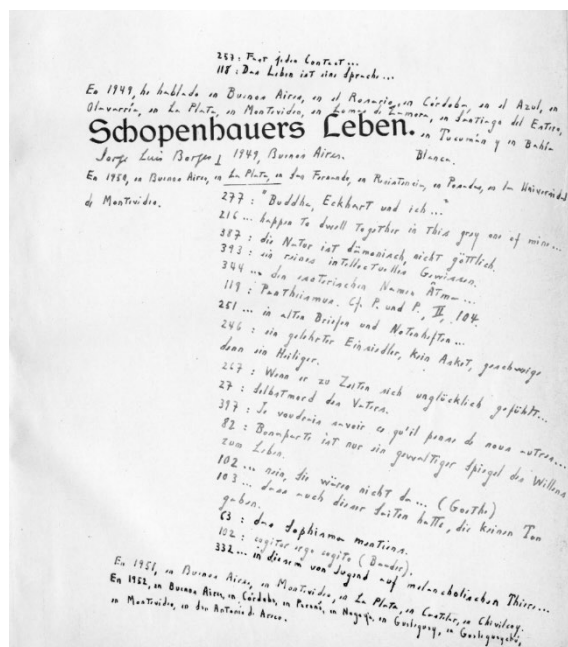 257: Fast jeden Contact...
118: Das Leben ist eine Sprache...
En 1949, he hablado en Buenos Aires, en el Rosario, en Córdoba, en el Azul, en
Olavarría, en La Plata, en Montevideo, en Lomas de Zamora, en Santiago del Estero,
Schopenhauers Leben. en Tucumán y en Bahía
Jorge Luis Borges 1949, Buenos Aires. Blanca.
En 1950, en Buenos Aires, en La Plata, en San Fernando, en Resistencia, en Posadas, en la Universidad
de Montevideo.
277: "Buddha, Eckhart und ich..."
216... happen to dwell together in this grey one of mine...
387: die Natur ist dämonisch, nicht göttlich.
393: ein reines intellectuelles Gewissen.
344... den esoterischen Namen Ātma...
119: Pantheismus. Cf. P. und P., II, 104.
251... in alten Briefen und Notenheften...
246: ein gelehrter Einsiedler, kein Asket, geschweige
denn ein Heiliger.
267: Wenn er zu Zeiten sich unglücklich gefühlt...
27: Selbstmord des Vaters.
397: Je voudrais savoir ce qu'il pense de nous autres...
82: Bonaparte ist nur ein gewaltiger Spiegel des Willens
zum Leben.
102... nein, Sie wären nicht da... (Goethe)
103... dass auch dieser Saiten hatte, die keinen Ton
gaben.
63: das Sophisma mentiens.
102: cogitor ergo cogito (Baader).
332... in diesem von Jugend auf melancholischen Thiere...
En 1951, en Buenos Aires, en Montevideo, en La Plata, en Casilda, en Chivilcoy.
En 1952, en Buenos Aires, en Córdoba, en Paraná, en Nogoyá, en Gualeguay, en Gualeguaychú,
en Montevideo, en San Antonio de Areco.